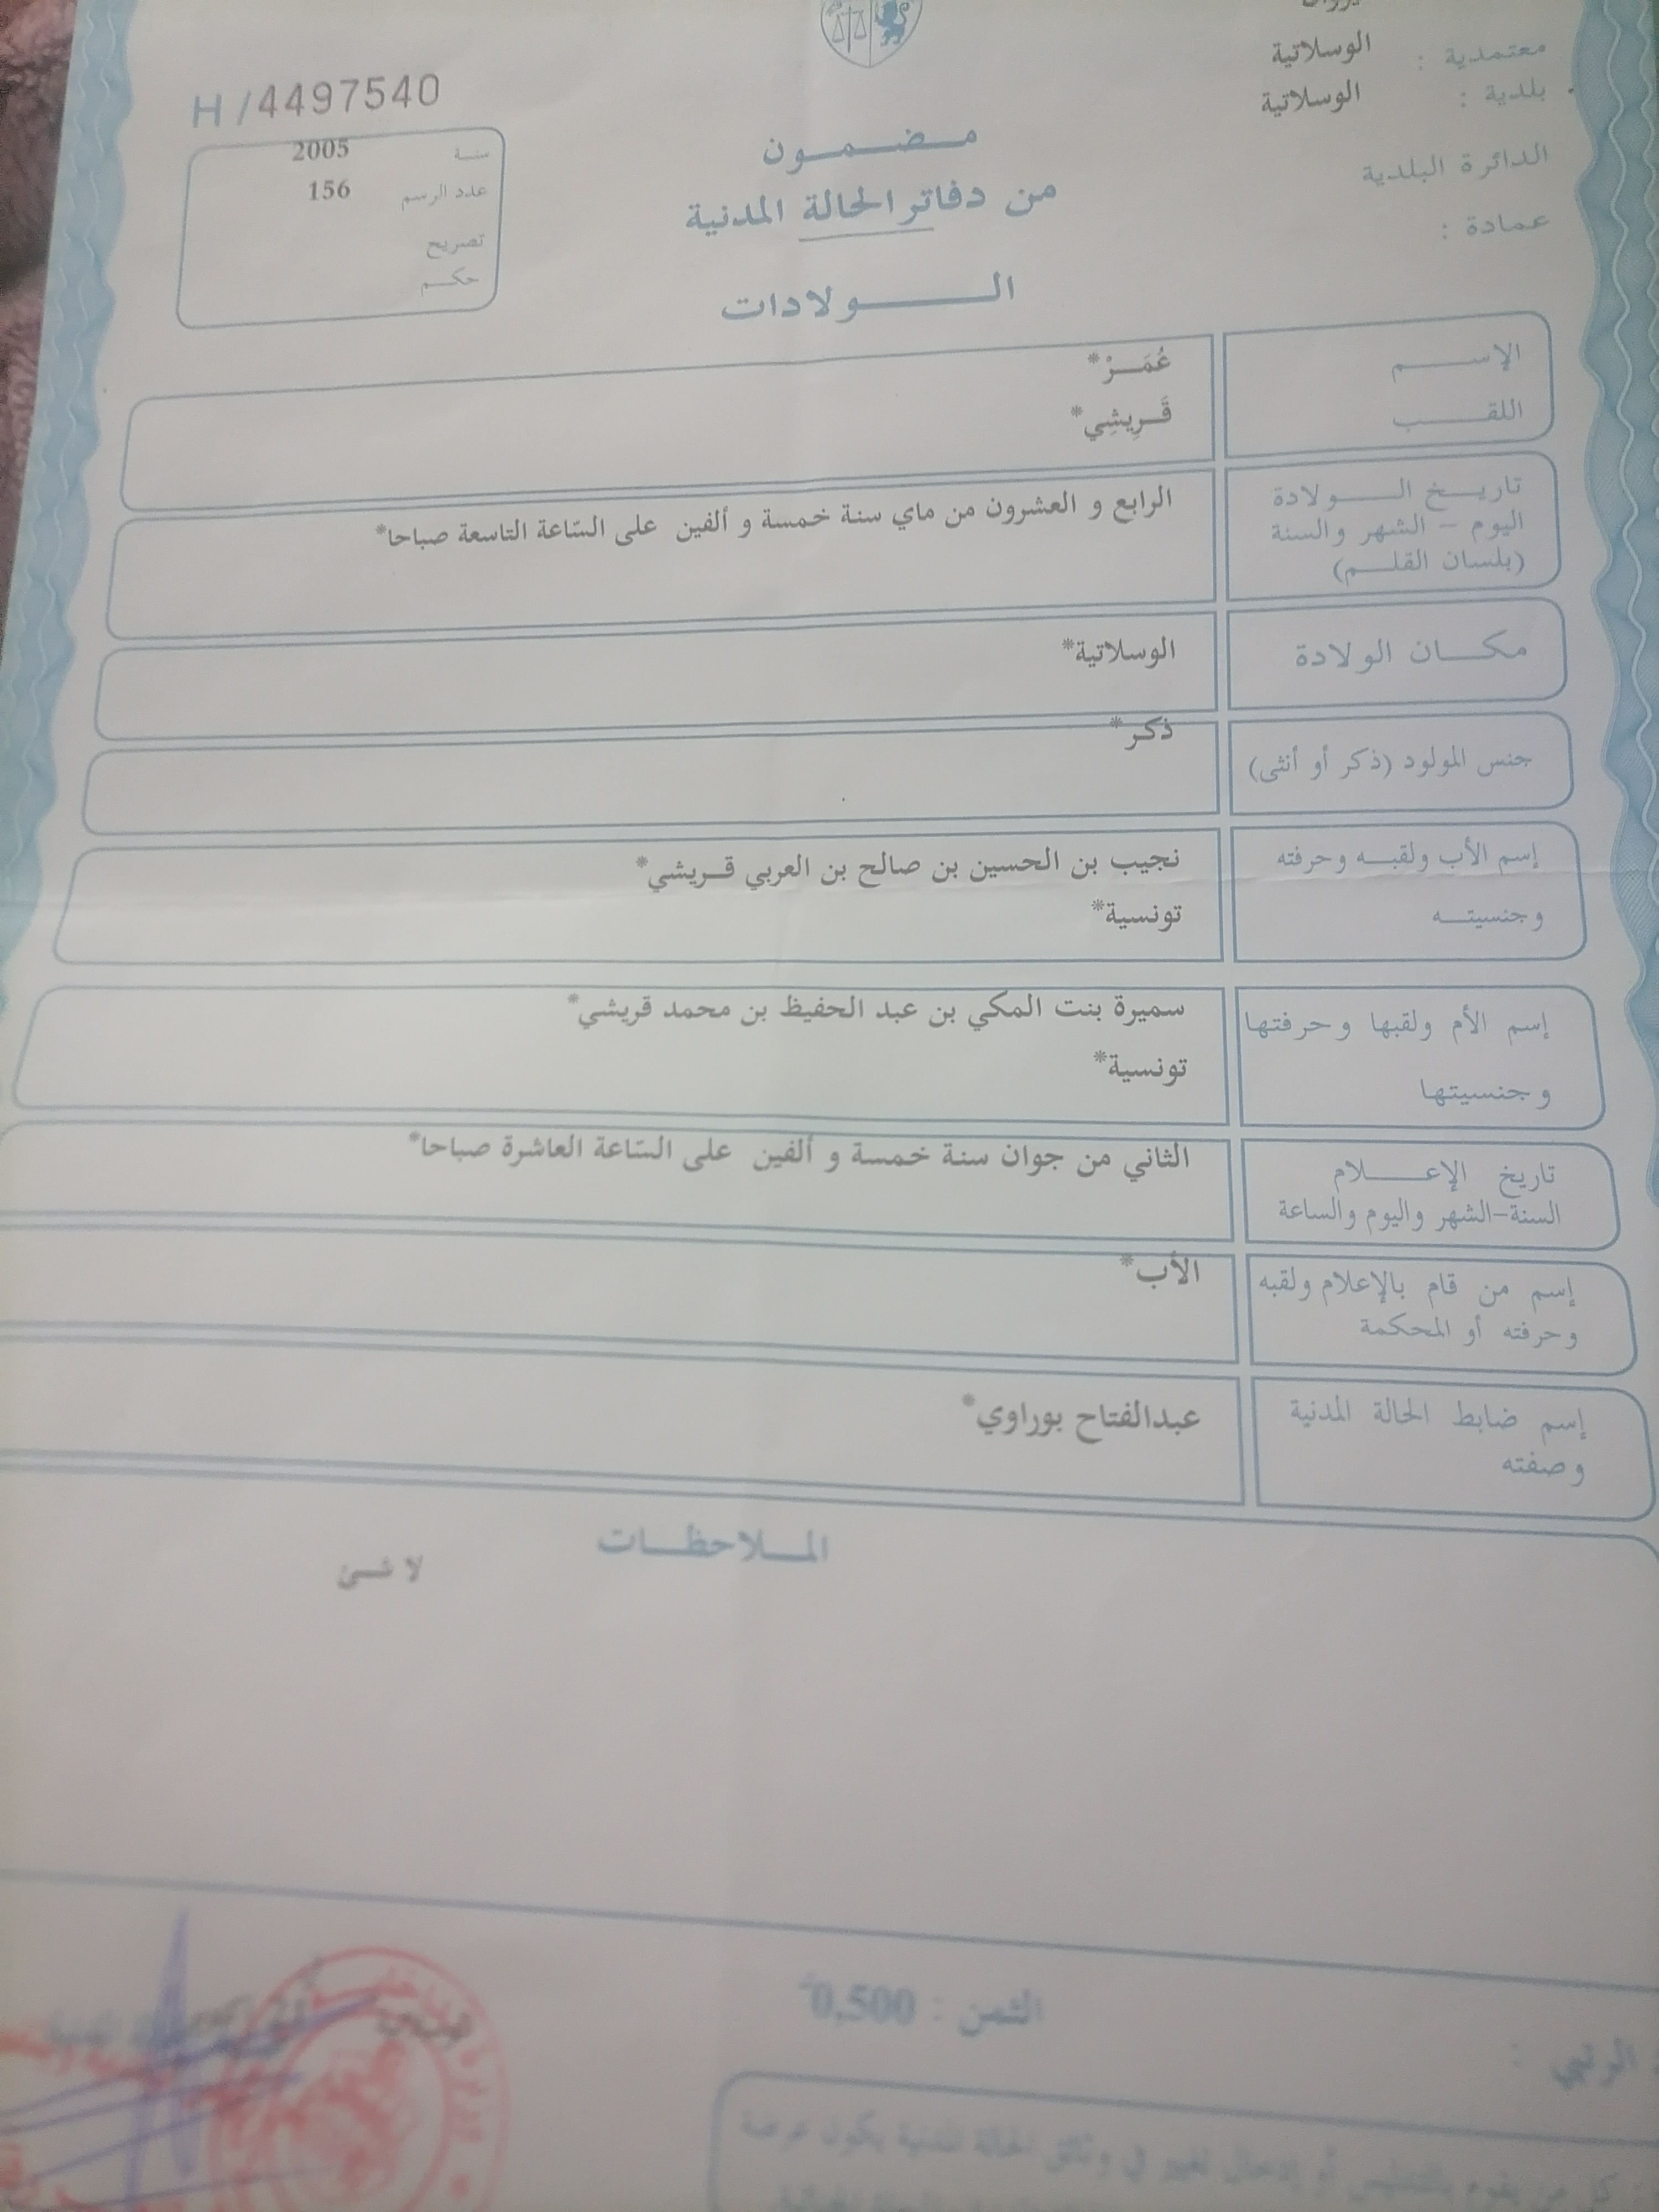 معتمدية : الوسلاتية
بلدية : الوسلاتية
الدائرة البلدية
عمادة :
H/4497540
سنة 2005
عدد الرسم 156
تصريح
حكم
مضمون
من دفاتر الحالة المدنية
الولادات
الإسم عُمَرْ*
اللقب قَرِيشِي*
تاريخ الولادة
اليوم – الشهر والسنة
(بلسان القلم)
الرابع و العشرون من ماي سنة خمسة و ألفين على السّاعة التاسعة صباحا*
مكان الولادة الوسلاتية*
جنس المولود (ذكر أو أنثى) ذكر*
إسم الأب ولقبه وحرفته نجيب بن الحسين بن صالح بن العربي قريشي*
وجنسيته تونسية*
إسم الأم ولقبها وحرفتها سميرة بنت المكي بن عبد الحفيظ بن محمد قريشي*
وجنسيتها تونسية*
تاريخ الإعلام
السنة–الشهر واليوم والساعة
الثاني من جوان سنة خمسة و ألفين على السّاعة العاشرة صباحا*
إسم من قام بالإعلام ولقبه
وحرفته أو المحكمة
الأب*
إسم ضابط الحالة المدنية
وصفته
عبدالفتاح بوراوي*
الملاحظات
لا شئ
الثمن : 0,500
كل من يقوم بالتدليس أو إدخال تغيير في وثائق الحالة المدنية يكون عرضة